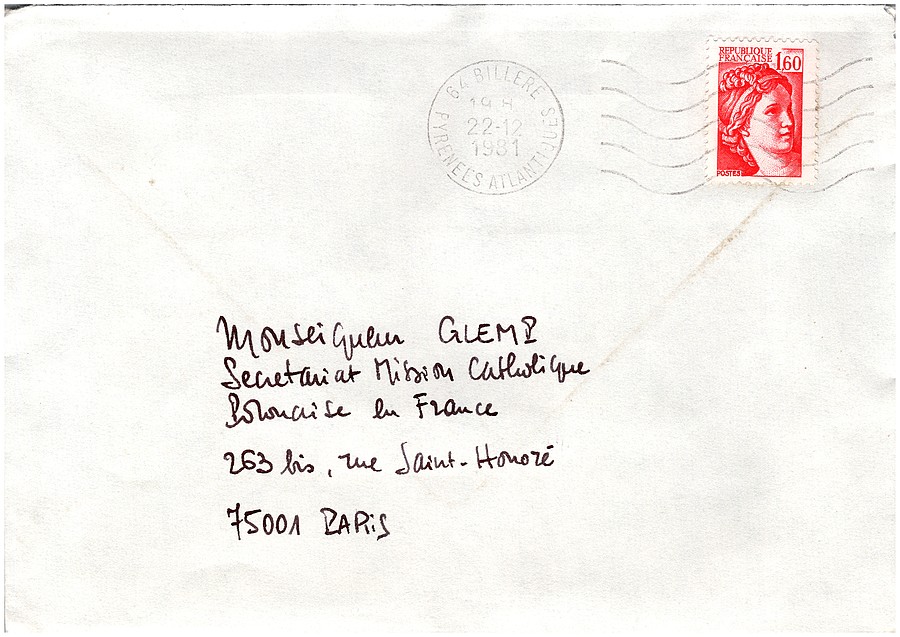 REPUBLIQUE
FRANÇAISE 1,60
POSTES
64 BILLERE
19 H
22-12
1981
PYRENEES ATLANTIQUES
Monseigneur GLEMP
Secretariat Mission Catholique
Polonaise en France
263 bis, rue Saint-Honoré
75001 PARIS